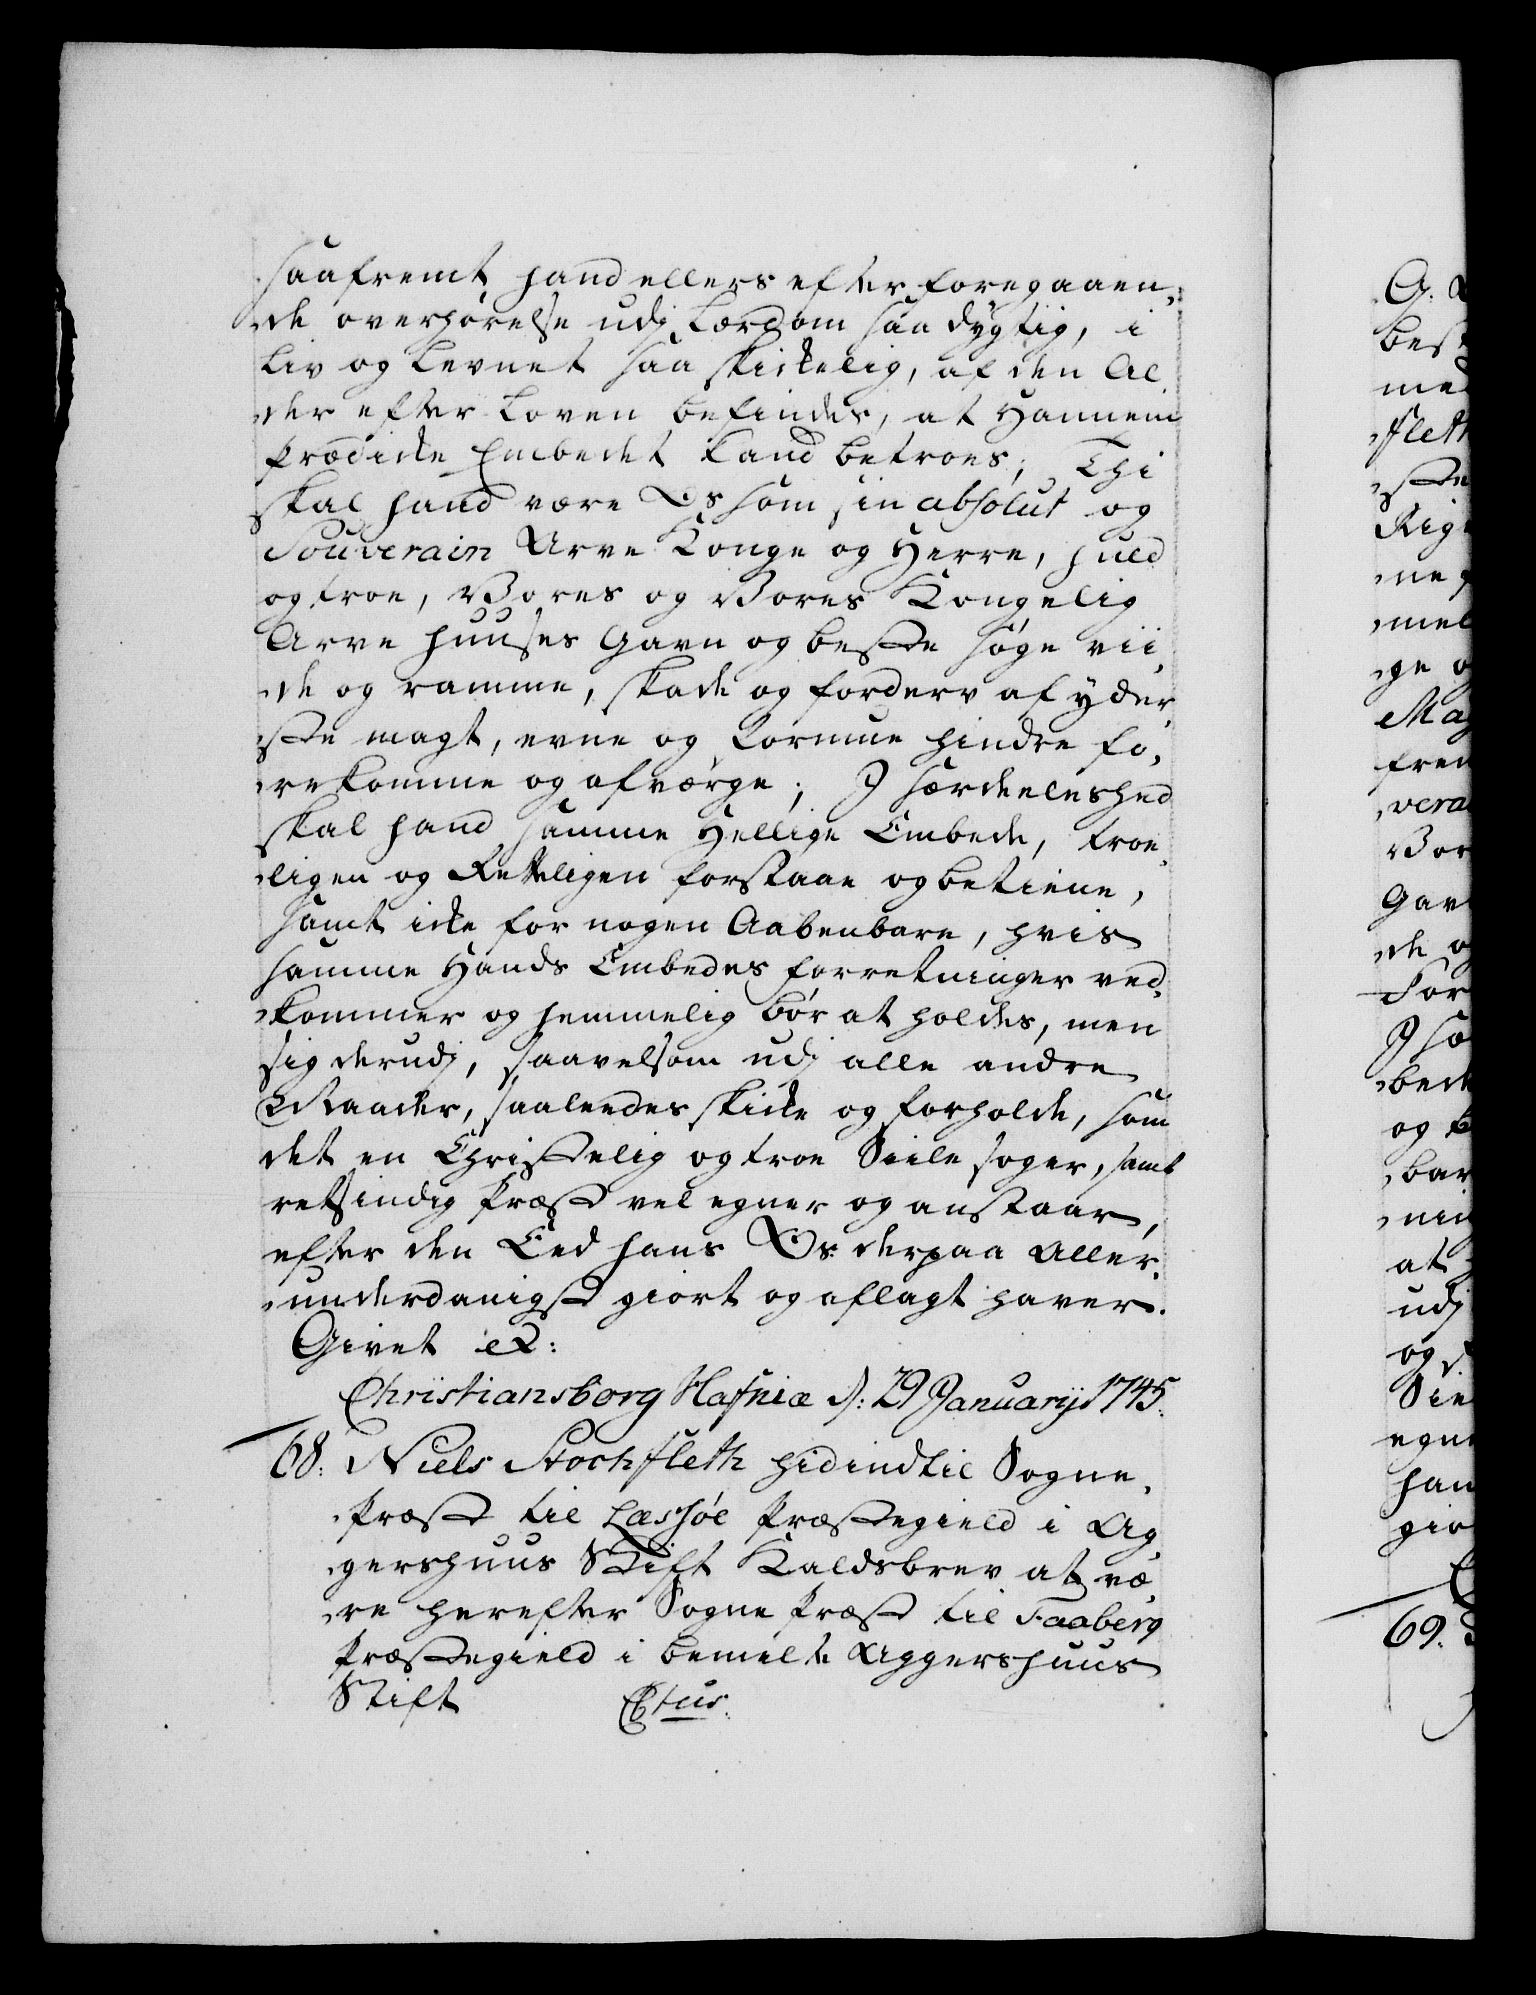 saafremt hand ellers efter foregaaen,
de overhørelse udj Lærdom saa dygtig, i
Liv og Levnet saa skickelig, af den Al,
der efter Loven befindes, at Hannem
Prædicke Embedet kand betroes; Thi
skal hand være Os som sin absolut og
Souverain Arve Konge og Herre, huld
og troe, Vores og Vores Kongelig
Arve Huuses Gavn og beste søge vii,
de og ramme, skade og forderv af yder,
ste magt, evne og formue hindre fo,
rekomme og afværge; J særdeeleshed
skal hand samme Hellige Embede, troe,
ligen og Retteligen forstaae og betiene,
samt icke for nogen Aabenbare, hvis
samme Hands Embedes forretninger ved,
kommer og hemmelig bør at holdes, men
sig derudj, saavelsom udj alle andre
Maader, saaleedes skicke og forholde, som
det en Christelig og troe Siele sørger, samt
retsindig Præst vel egner og anstaar,
efter den Eed hans Os derpaa Aller,
underdanigst giort og aflagt haver.
Givet etc:
Christiansborg Hafniæ d: 29 Januarij 1745.
68: Niels Stochfleth hidindtil Sogne,
Præst til Læssøe Præstegield i Ag,
gershuus Stift Kaldsbrev at væ,
re herefter Sogne Præst til Faaberg
Præstegield i bemelte Aggershuus
Stift
G.
best
med
fleth
ste
Rig
ne
mel
ge o
Mag
frem
vera
Vor
Gav
de o
For
J sæ
bede
og b
bar
nin
at
udj
og
Sie
egne
han
gio
69.